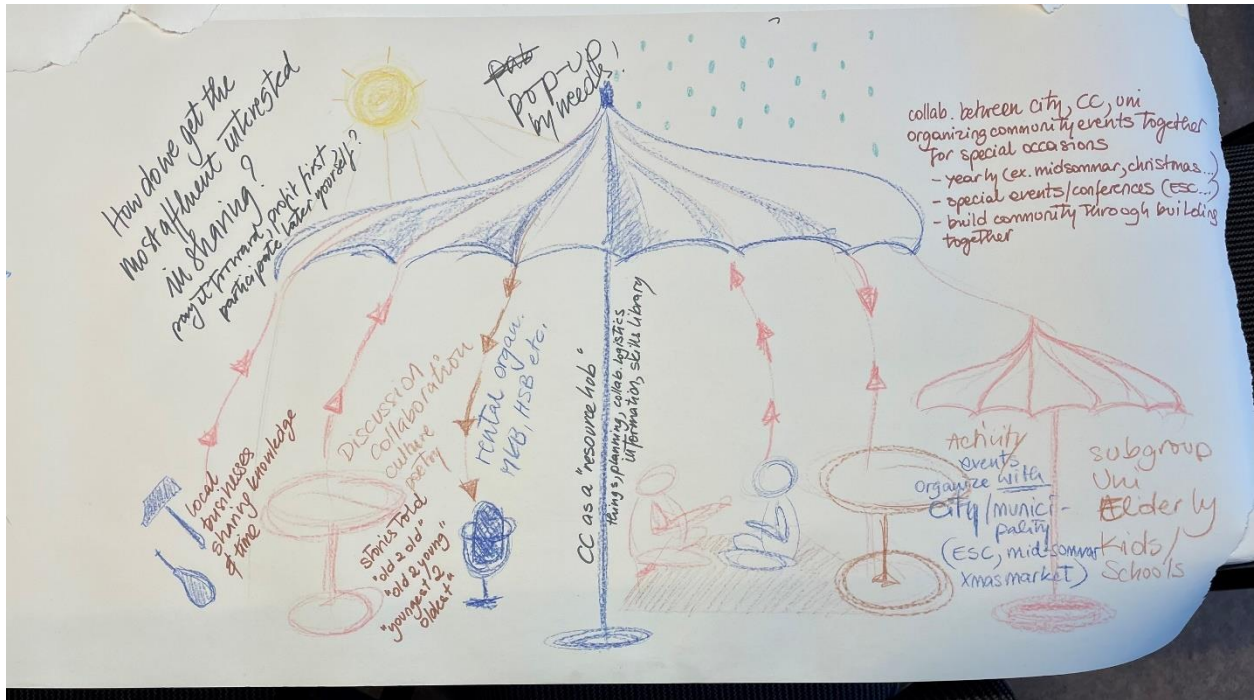 How do we get the
most affluent interested
in sharing?
pay it forward, profit first
participate later yourself?
pub
pop-up
by needs!
collab. between city, CC, uni
organizing community events together
for special occasions
- yearly (ex. midsommar, christmas...)
- special events/conferences (ESC...)
- build community through building
together
local
businesses
sharing knowledge
& time
DISCUSSION
collaboration
culture
poetry
stories told
"old 2 old"
"old 2 young"
"youngest 2
oldest"
rental organ.
MKB, HSB etc.
CC as a "resource hub"
things, planning, collab. logistics
information, skills library
Activity
events
organize with
City/munici-
pality
(ESC, mid-sommar
xmas market)
subgroup
Uni
Elderly
Kids/
Schools